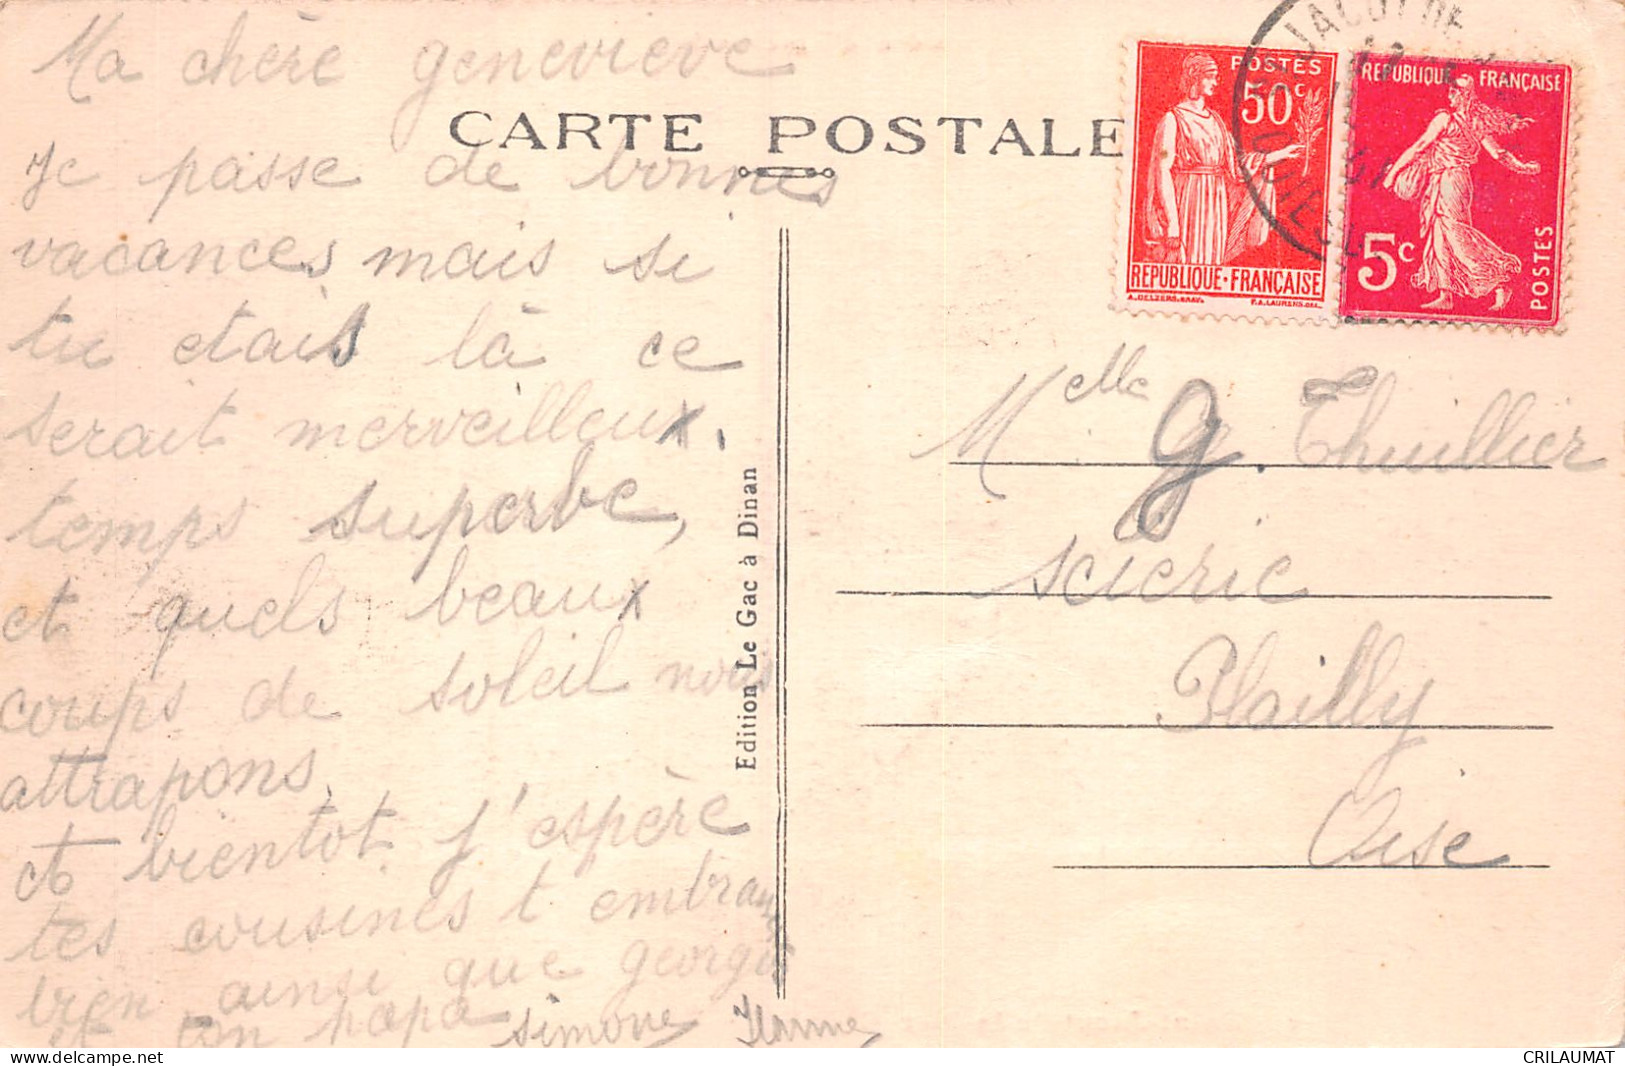 Ma chère geneviève
CARTE POSTALE
Je passe de bonnes
vacances mais si
tu etais là ce
serait merveilleux.
temps superbe,
et quels beaux
coups de soleil nous
attrapons.
et bientot j'espère
tes cousines t embrassent
bien ainsi que georges
et ton papa Simone
Edition Le Gac à Dinan
POSTES
50c
REPUBLIQUE·FRANÇAISE
REPUBLIQUE FRANÇAISE
5c
POSTES
Melle G. Thuillier
scierie
Plailly
Oise
CRILAUMAT